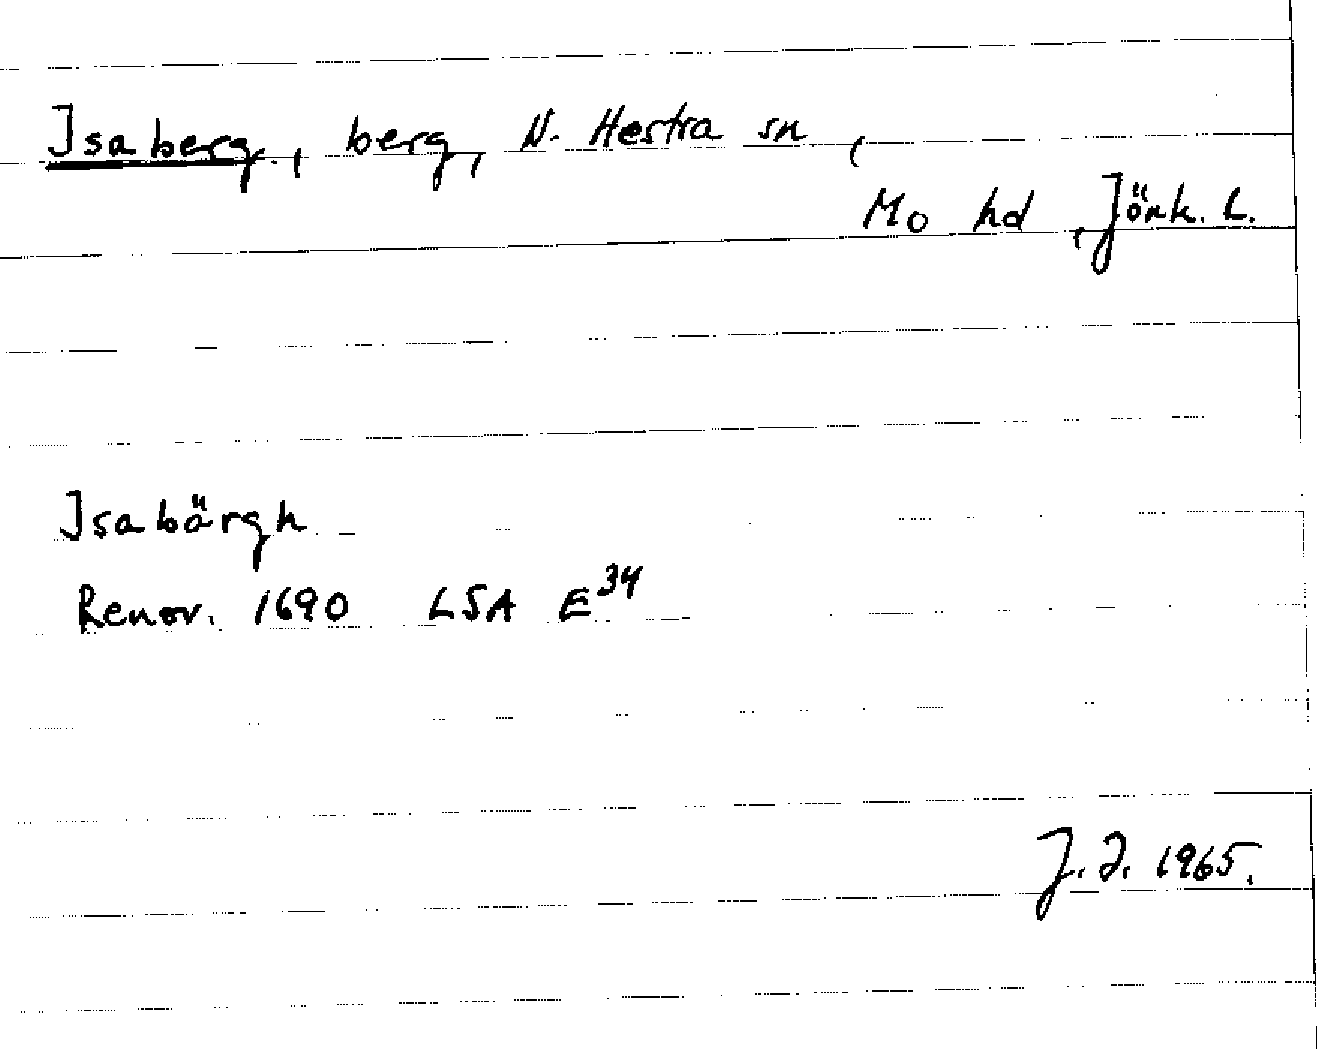 Isaberg, berg, N. Hestra sn,
Mo hd, Jönk. L.
Isabärgh
Renov. 1690 LSA E34
J. J. 1965.